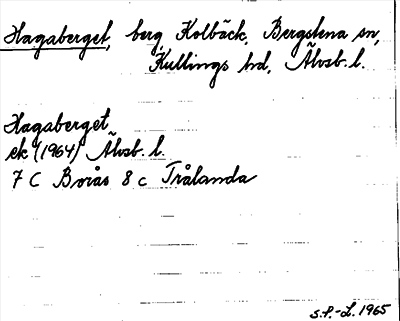 Hagaberget, berg, Kolbäck, Bergstena sn,
Kullings hd, Älvsb. l.
Hagaberget
ek (1964) Älvsb. l.
7 C Borås 8 c Trålanda
S.P.-L. 1965